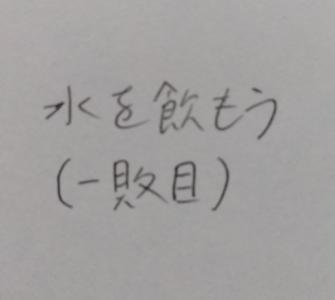 水を飲もう
(一敗目)